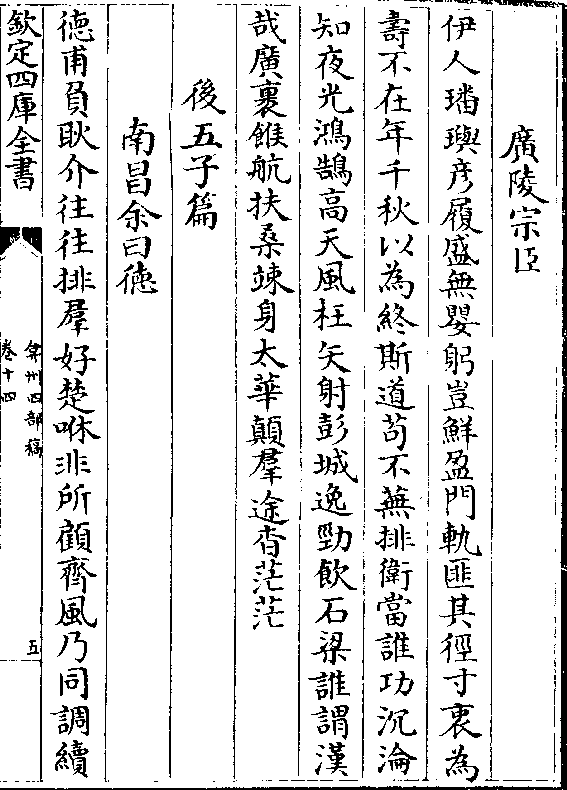 廣陵宗臣
伊人璠璵彥履盛無嬰躬豈鮮盈門軌匪其徑寸衷為
壽不在年千秋以為終斯道苟不蕪排衛當誰功沉淪
知夜光鴻鵠高天風枉矢射彭城逸勁飲石梁誰謂漢
哉廣褰餱航扶桑竦身太華顛羣途杳茫茫
後五子篇
南昌余曰德
德甫負耿介往往排羣好楚咻非所顧齊風乃同調續
欽定四庫全書
弇州四部稿
卷十四
五